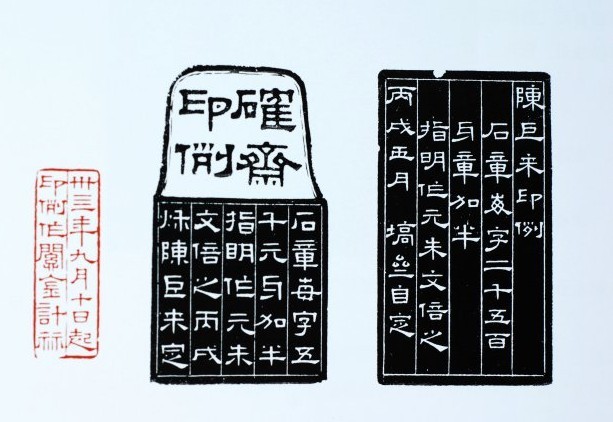 陳巨来印例
石章每字二千五百
牙章加半
指明作元朱文倍之
丙戌五月 塙亝自定
確齋
印例
石章每字五
千元牙加半
指明作元朱
文倍之丙戌
秌陳巨来定
卅三年九月十日起
印例作關金計祘